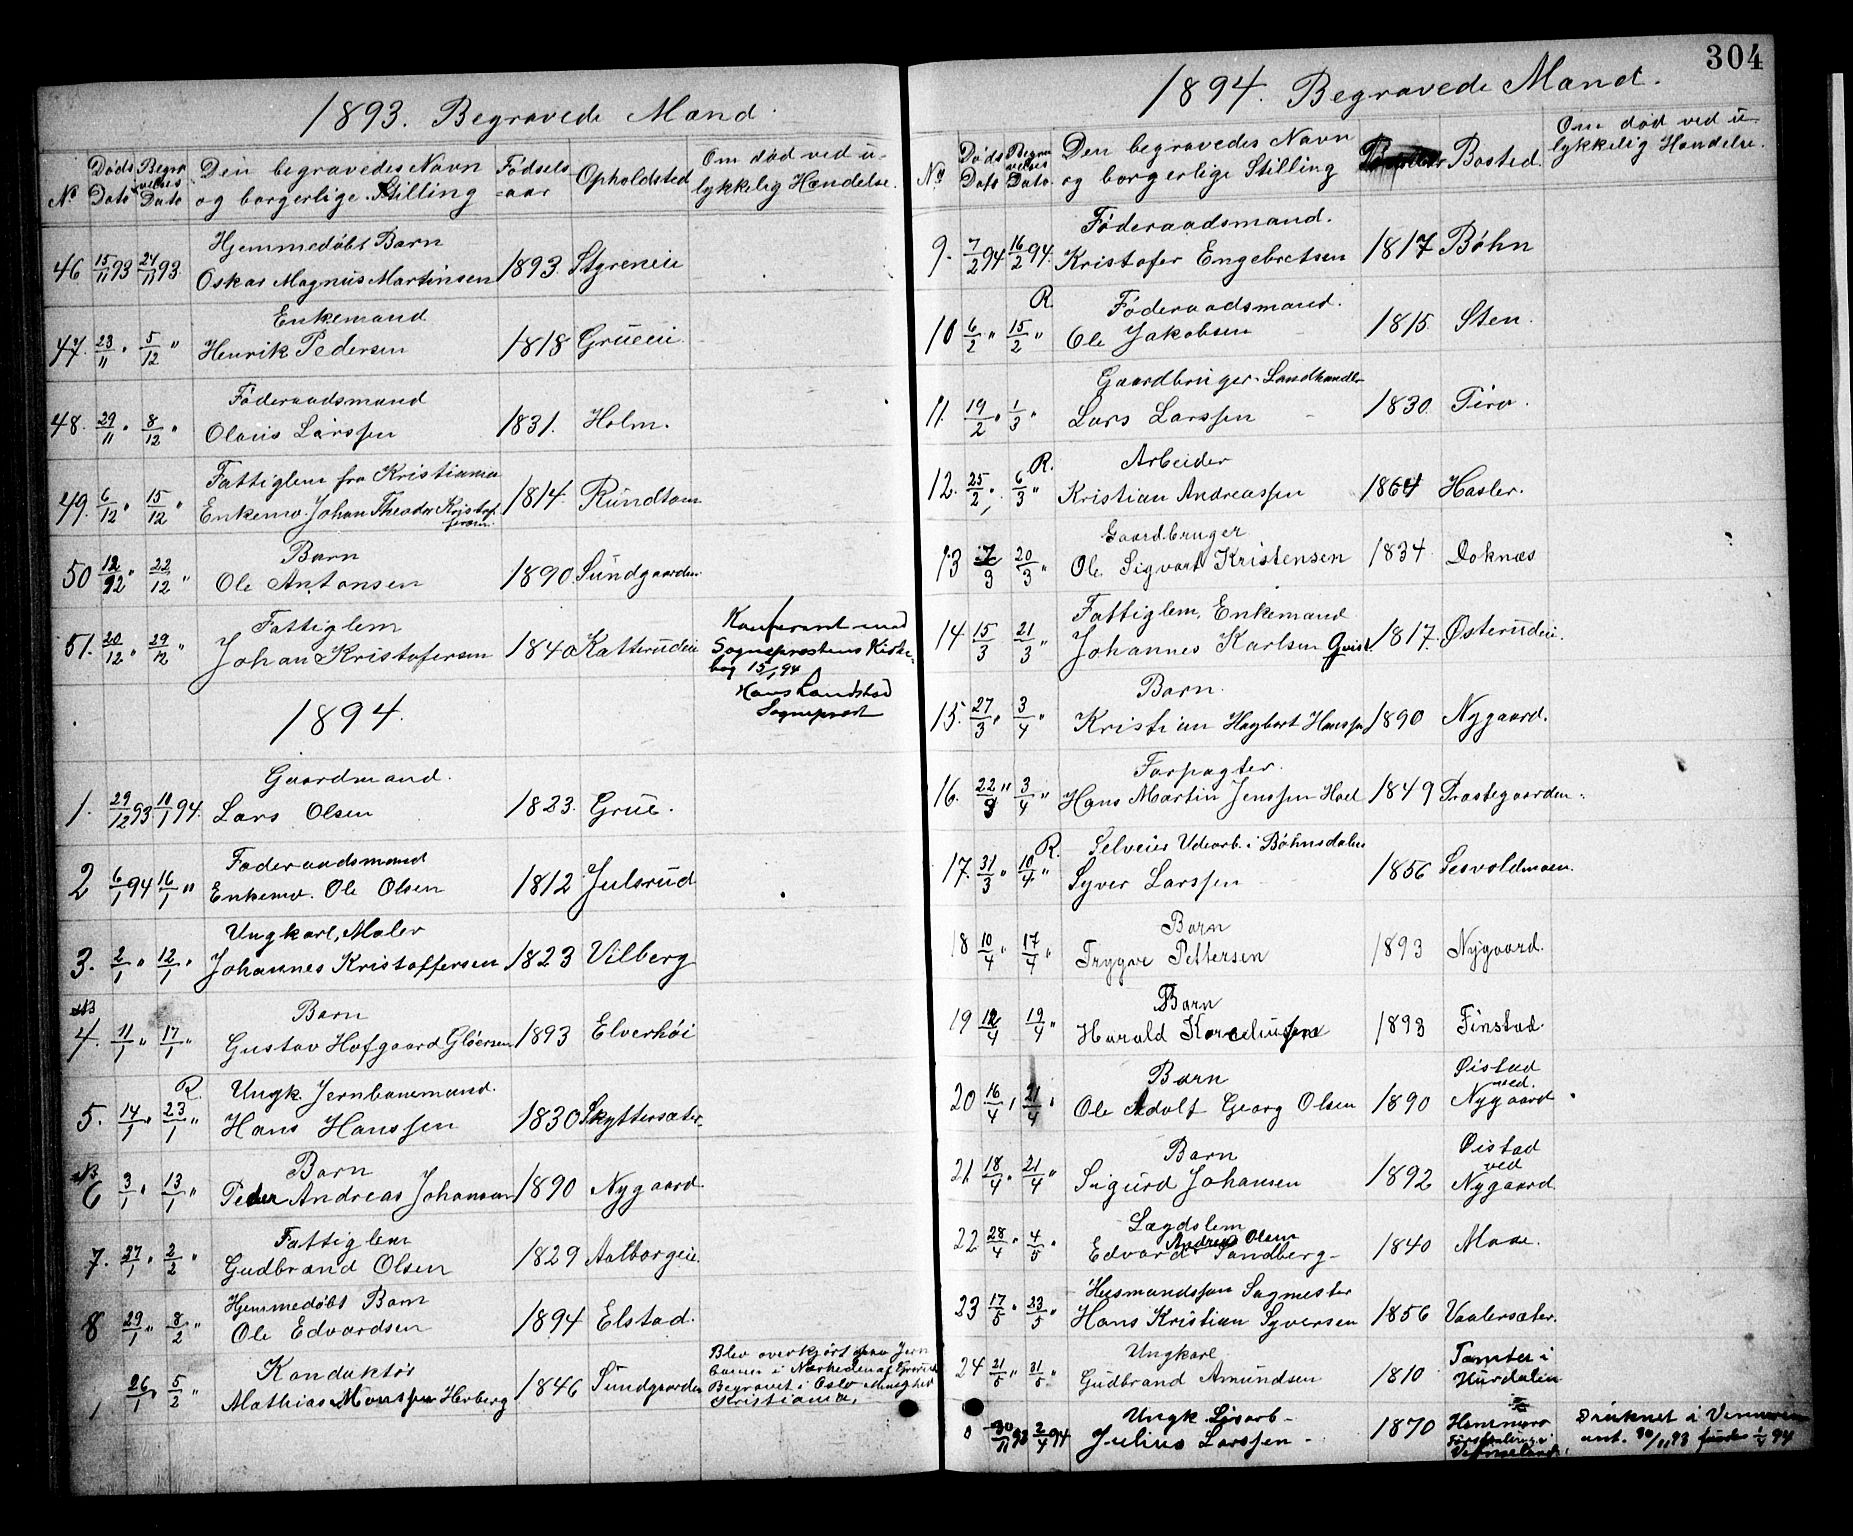 304
1893. Begravede Mænd.
No
Døds Dato
Begravelses Dato
Den begravedes Navn og borgerlige Stilling
Fødselsaar
Opholdsted
Om død ved ulykkelig Hændelse.
Hjemmedøbt Barn
46 15/11 93 24/11 93. Oskar Magnus Martinsen 1893. Styreneie
Enkemand
47. 23/11 " 5/12 " Henrik Pedersen 1818. Grueeie
Føderaadsmand
48. 29/11 " 8/12 " Olaus Larssen 1831. Holm.
Fattiglem fra Kristiania
49. 6/12 " 15/12 " Enkem. Johan Theodor Kristoffersen. 1814. Rundtom
Barn
50 12/12 " 22/12 " Ole Antonsen 1890. Sundgaarden.
Fattiglem
51. 20/12 " 29/12 " Johan Kristofersen 1840 Katterudeie
Konfereret med
Sogneprestens Kirke-
bog 15/1 94
Hans Landstad
Sogneprest
1894.
Gaardmand.
1. 29/12 93. 10/1 94. Lars Olsen 1823. Grue.
Føderaadsmand
2 6/1 94 16/1 " Enkem. Ole Olsen 1812 Julsrud
Ungkarl, Maler
3. 2/1 " 12/1 " Johannes Kristoffersen 1823 Vilberg
NB Barn
4. 11/1 " 17/1 " Gustav Hofgaard Gløersen 1893 Elverhøi
R. Ungk. Jernbanemand.
5. 14/1 " 23/1 " Hans Hanssen 1830 Skyttersæter.
NB Barn
6 3/1 " 13/1 " Peder Andreas Johansen 1890 Nygaard.
Fattiglem
7. 27/1 " 2/2 " Gudbrand Olsen 1829 Aalborgeie.
Hjemmedøbt Barn
8 29/1 " 8/2 " Ole Edvardsen 1894 Elstad.
Konduktør
26/1 " 5/2 " Mathias Monssen Herberg 1846 Sundgaarden
Blev overkjørt paa Jern
banen i Nærheden af
Begravet i Oslo Menighed
Kristiania.
1894. Begravede Mænd.
No
Døds Dato
Begravelses Dato.
Den begravedes Navn og borgerlige Stilling
Bosted.
Om død ved ulykkelig Hændelse.
Føderaadsmand.
9. 7/2 94 16/2 94. Kristofer Engebretsen 1817 Bøhn
R. Føderaadsmand.
10 6/2 " 15/2 " Ole Jakobsen 1815. Sten.
Gaardbruger-Landhandler
11. 19/2 " 1/3 " Lars Larssen 1830.
R. Arbeider
12. 25/2 " 6/3 " Kristian Andreassen 1864 Hasler.
Gaardbruger
13 7/3 20/3 " Ole Sigvart Kristensen 1834. Doknæs
Fattiglem, Enkemand
14. 15/3 21/3 " Johannes Karlsen Qvist 1817. Østerudeie.
Barn.
15. 27/3 " 3/4 " Kristian Hagbart Hanssen 1890 Nygaard.
Forpagter.
16. 22/3 " 3/4 " Hans Martin Jenssen Hoel 1849 Præstegaarden.
R. Selveier Udearb. i Bøhnsdalen
17. 31/3 " 10/4 " Syver Larssen 1856 Sesvoldmoen.
Barn
18 10/4 " 17/4 " Trygve Pettersen 1893 Nygaard.
Barn
19 12/4 19/4 " Harald Korneliussen 1893 Finstad.
Barn
20 16/4 " 21/4 " Ole Adolf Georg Olsen 1890 Øistad ved. Nygaard
Barn
21 18/4 " 21/4 " Sigurd Johansen 1892 Øistad ved Nygaard.
Lægdslem
22 28/4 " 4/5 " Edvard Andreas Olsen Sandberg 1840
Husmandssøn Sagmester
23 17/5 " 23/5 " Hans Kristian Syversen 1856 Vaalersæter.
Ungkarl
24 21/5 " 31/5 " Gudbrand Amundsen 1810 Tømte i Hurdalen
Ungk.
30/11 93 2/4 94 Julius Larssen 1870 Hammars
Druknet i
ant. 30/11 93 1/4 94